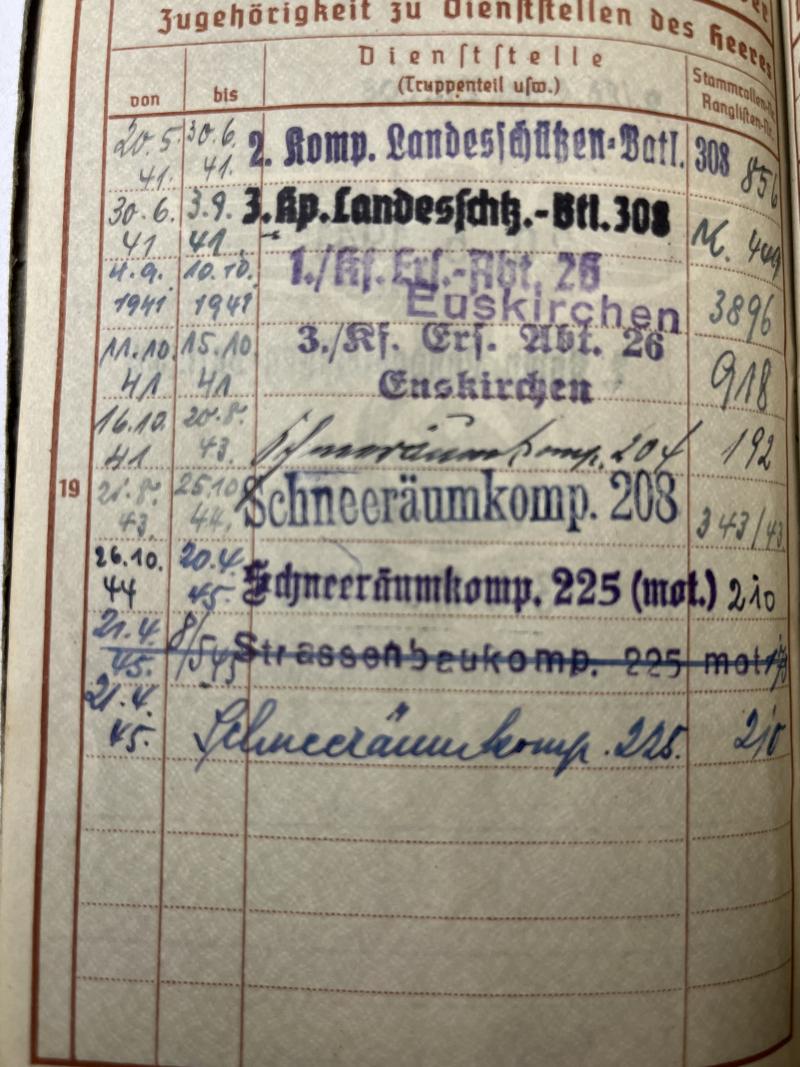 Zugehörigkeit zu Dienststellen des Heeres
von bis Dienststelle
(Truppenteil usw.) Stammrollen-Nr.
Ranglisten-Nr.
20.5. 30.6. 2. Komp. Landesschützen-Batl. 308 856
41. 41.
30.6. 3.9. 3. Kp. Landesschtz.-Btl. 308 449
41 41.
4.9. 10.10. 1./Kf. Ers.-Abt. 26 3896
1941 1941 Euskirchen
11.10. 15.10. 3./Kf. Ers. Abt. 26 918
41 41 Euskirchen
16.10. 20.8. Schneeräumkomp. 204 192
41 43.
19 21.8. 25.10. Schneeräumkomp. 208 343/43
43. 44.
26.10. 20.4. Schneeräumkomp. 225 (mot.) 210
44 45.
21.4. 8/5 45 Strassenbaukomp. 225 mot
45.
21.4. Schneeräumkomp. 225. 210
45.